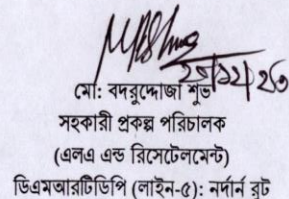 ২৭/১২/২৩
মো: বদরুদ্দোজা শুভ
সহকারী প্রকল্প পরিচালক
(এলএ এন্ড রিসেটেলমেন্ট)
ডিএমআরটিডিপি (লাইন-৫): নর্দার্ন রুট